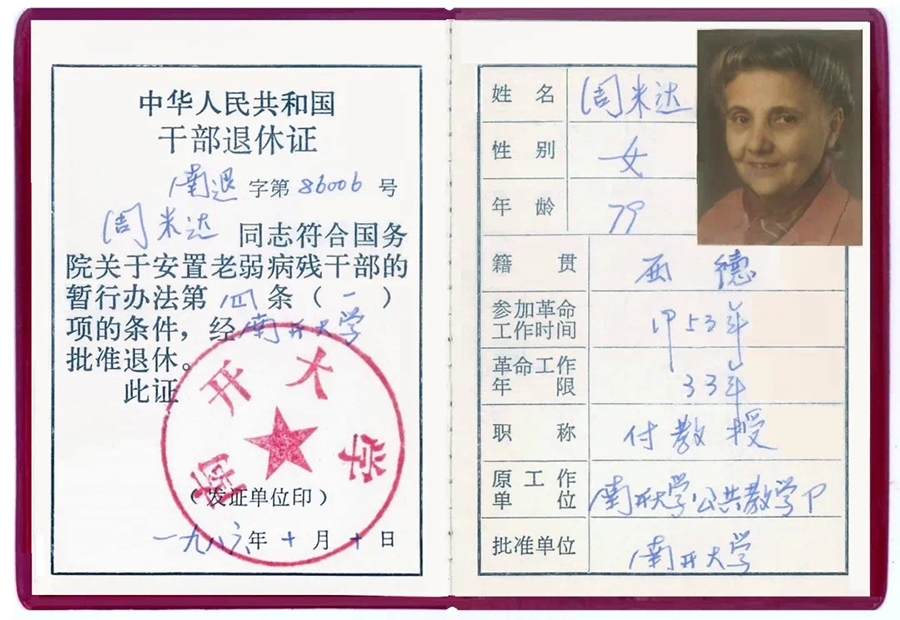 中华人民共和国
干部退休证
南退 字第 86006 号
周米达 同志符合国务
院关于安置老弱病残干部的
暂行办法第 四 条（ 一 ）
项的条件，经 南开大学
批准退休。
此证
南开大学
（发证单位印）
一九八六年十月十日
姓名 周米达
性别 女
年龄 79
籍贯 西德
参加革命
工作时间 53年
革命工作
年限 33年
职称 付教授
原工作
单位 南开大学公共教学
批准单位 南开大学